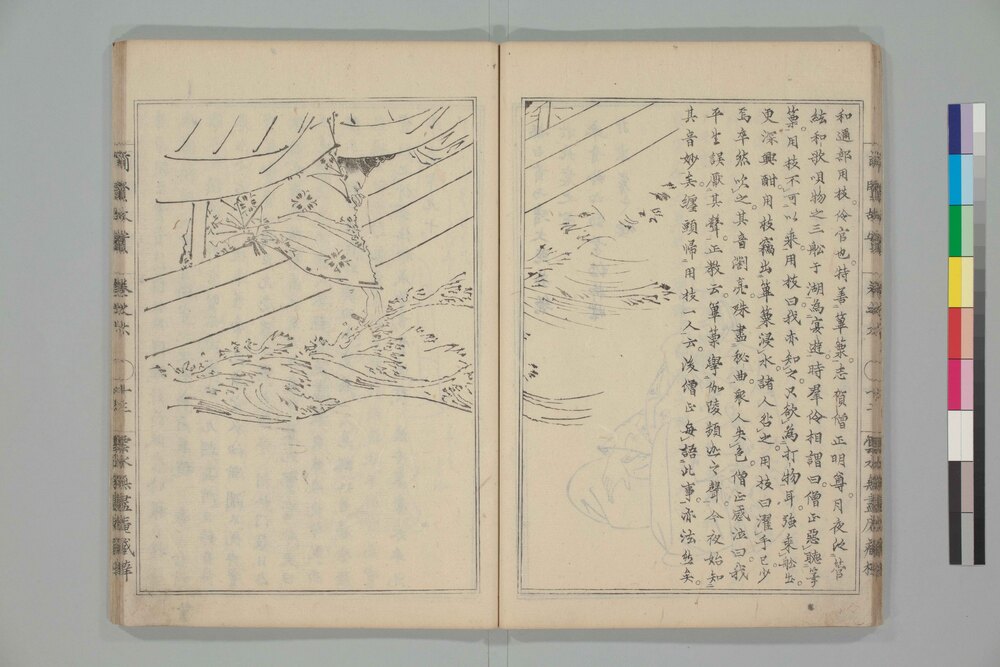 和邇部用枝。伶官也。特善篳篥。志賀僧正明尊。月夜從管
絃和歌唄物之三舩于湖為宴遊。時羣伶相謂曰。僧正惡聽篳
篥。用枝不可以乘。用枝曰。我亦知之。只欲為打物耳。強乘舩。
更深興酣。用枝竊出篳篥浸水。諸人咎之。用枝曰。濯手已。少
焉卒然吹之。其音瀏亮。殊盡秘曲。衆人失色。僧正感泣曰。我
平生誤厭其聲。正教云。篳篥學伽陵頻迦之聲。今夜始知
其音妙矣。纏頭歸用枝一人云。後僧正每語此事。亦法然矣。